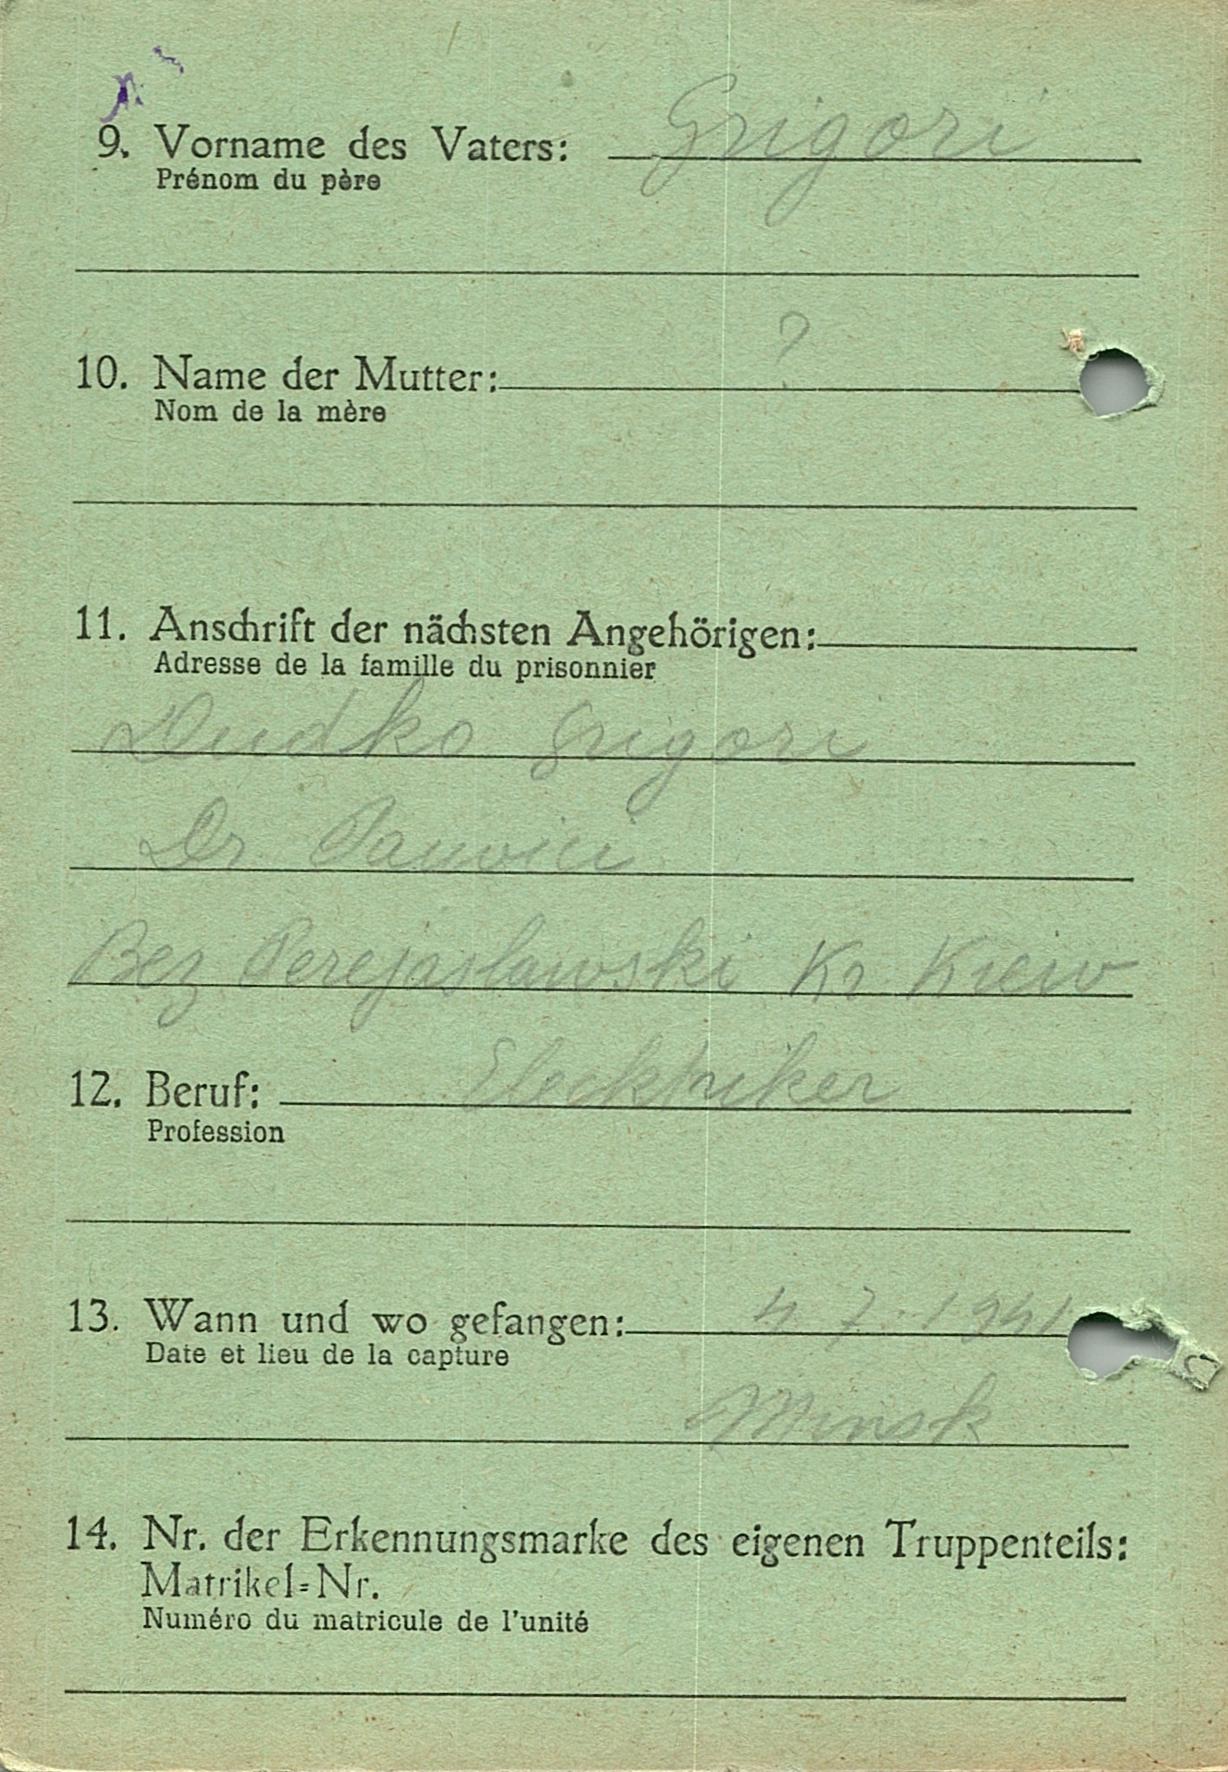 9. Vorname des Vaters: Grigori
Prénom du père
10. Name der Mutter: ?
Nom de la mère
11. Anschrift der nächsten Angehörigen:
Adresse de la famille du prisonnier
Dudko Grigori
Dr
Bez Perejaslawski Kr Kiew
12. Beruf: Elecktriker
Profession
13. Wann und wo gefangen: 4.7.1941
Date et lieu de la capture
Minsk
14. Nr. der Erkennungsmarke des eigenen Truppenteils:
Matrikel=Nr.
Numéro du matricule de l'unité